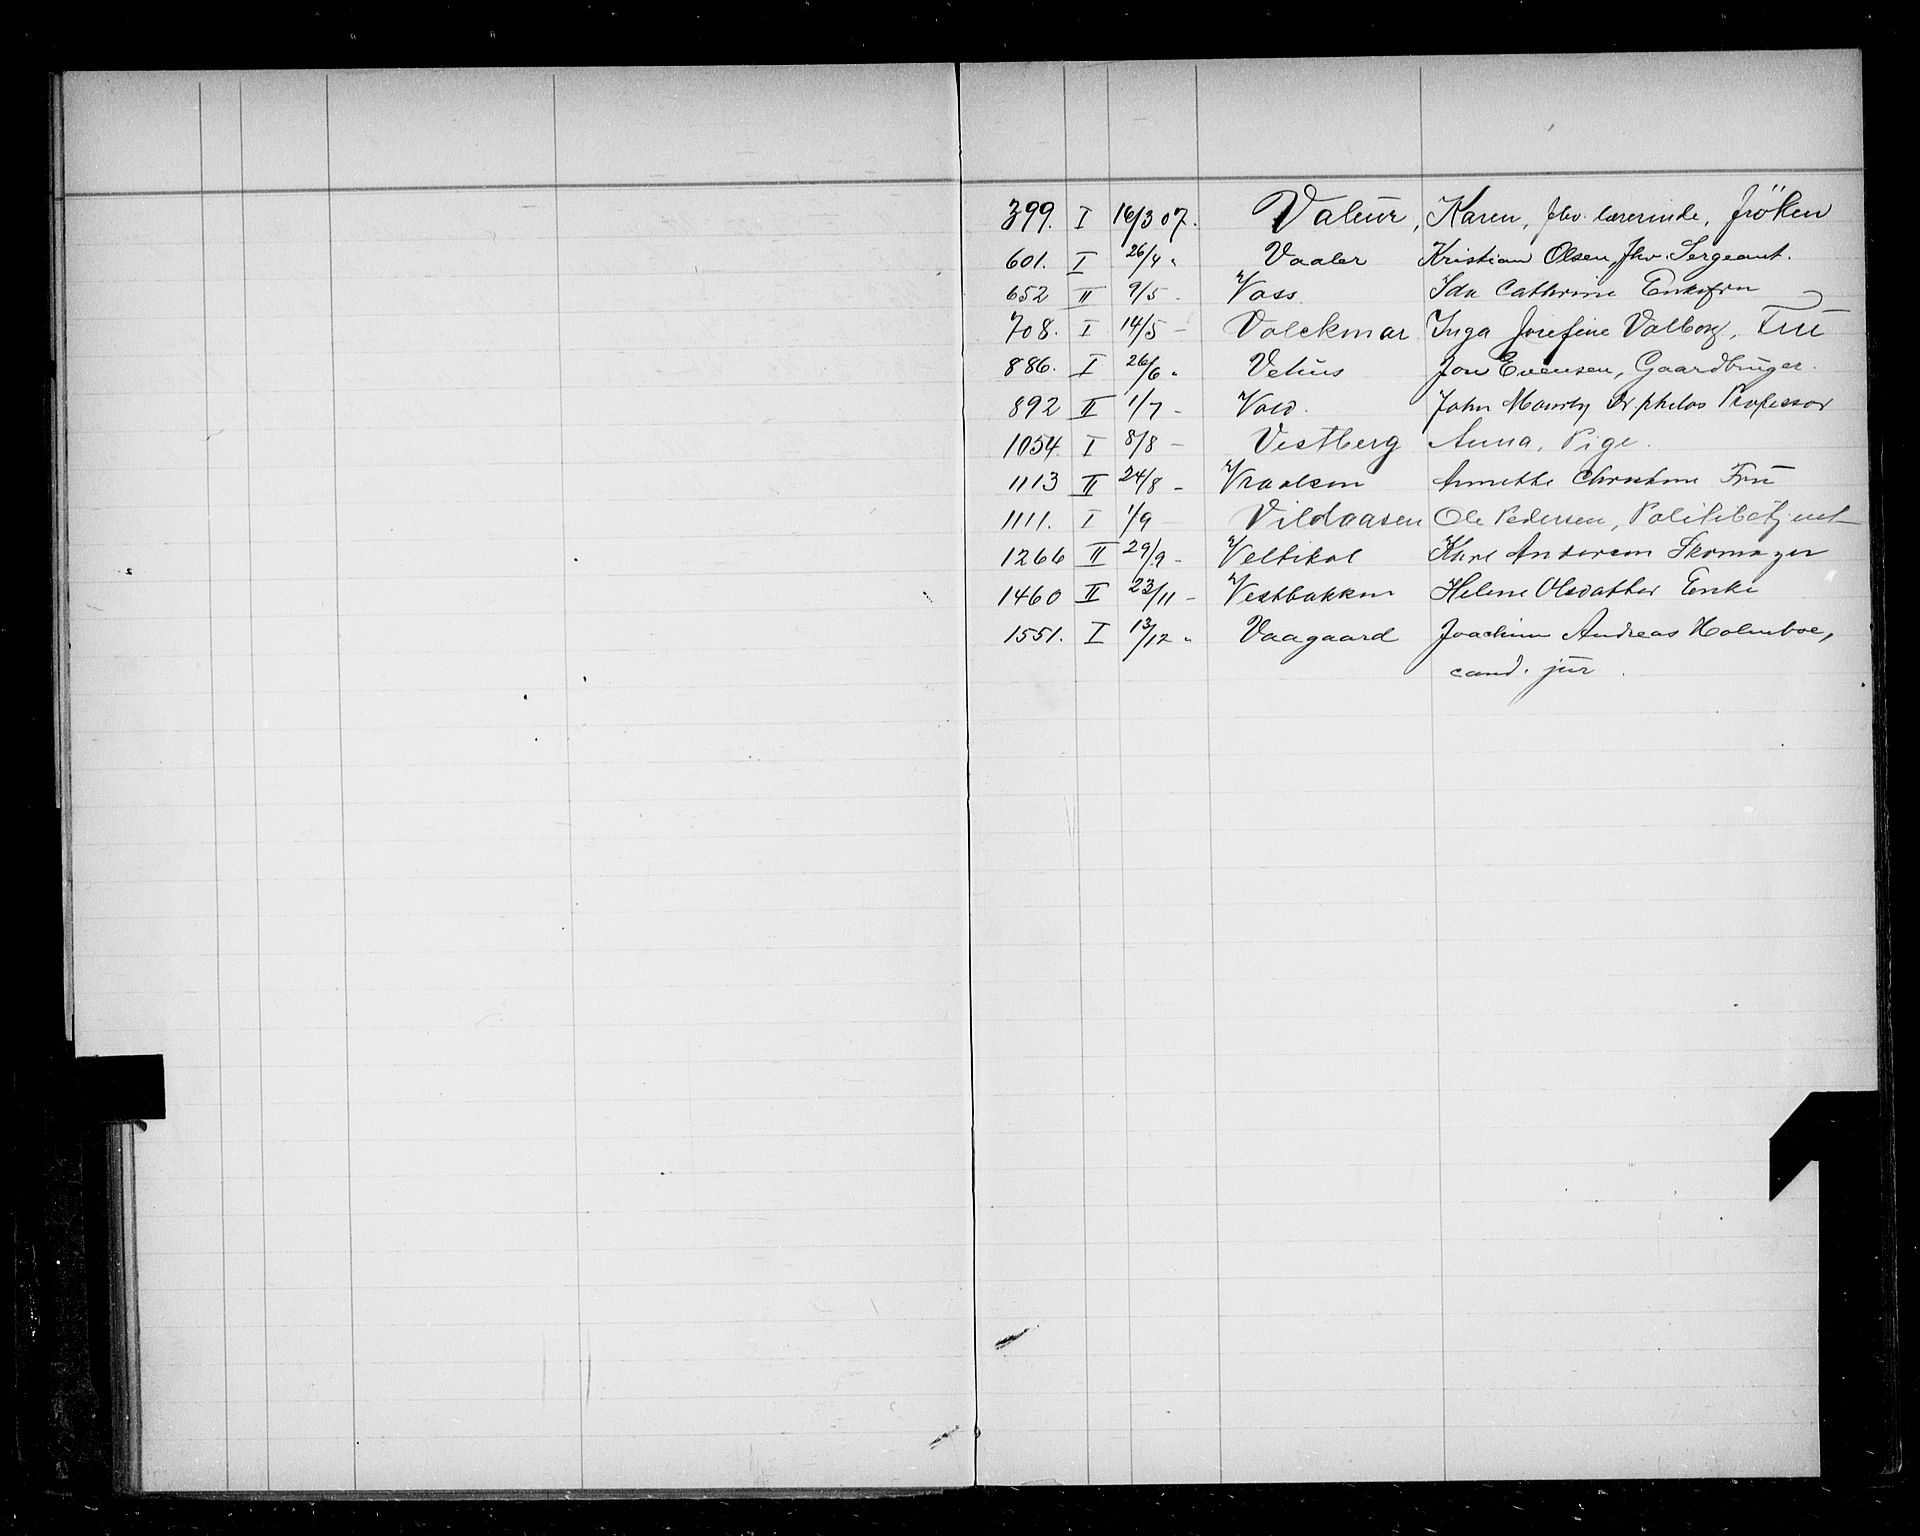 399. I 16/3 07. Valeur, Karen, fhv. lærerinde, fröken
601. I 26/4 " Vaaler Kristian Olsen, fhv. Sergeant.
652 II 9/5 - Voss Ida Cathrine Enkefru
708. I 14/5 - Volckmar Inga Josefine Valborg, Fru
886. I 26/6 " Vetius Jon Evensen, Gaardbruger.
892 II 1/7 - Vold. John Mourly Dr. philos Professor
1054 I 8/8 - Vestberg Anna, Pige.
1113 II 24/8 - Vraalsen Annette Christine Fru
1111. I 1/9 - Vildaasen Ole Pedersen, Politibetjent
1266 II 29/9 - Karl Andersen Skomager
1460 II 23/11 - Vestbakken Helene Olsdatter Enke
1551. I 13/12 " Vaagaard Joachim Andreas Holmboe,
cand. jur.